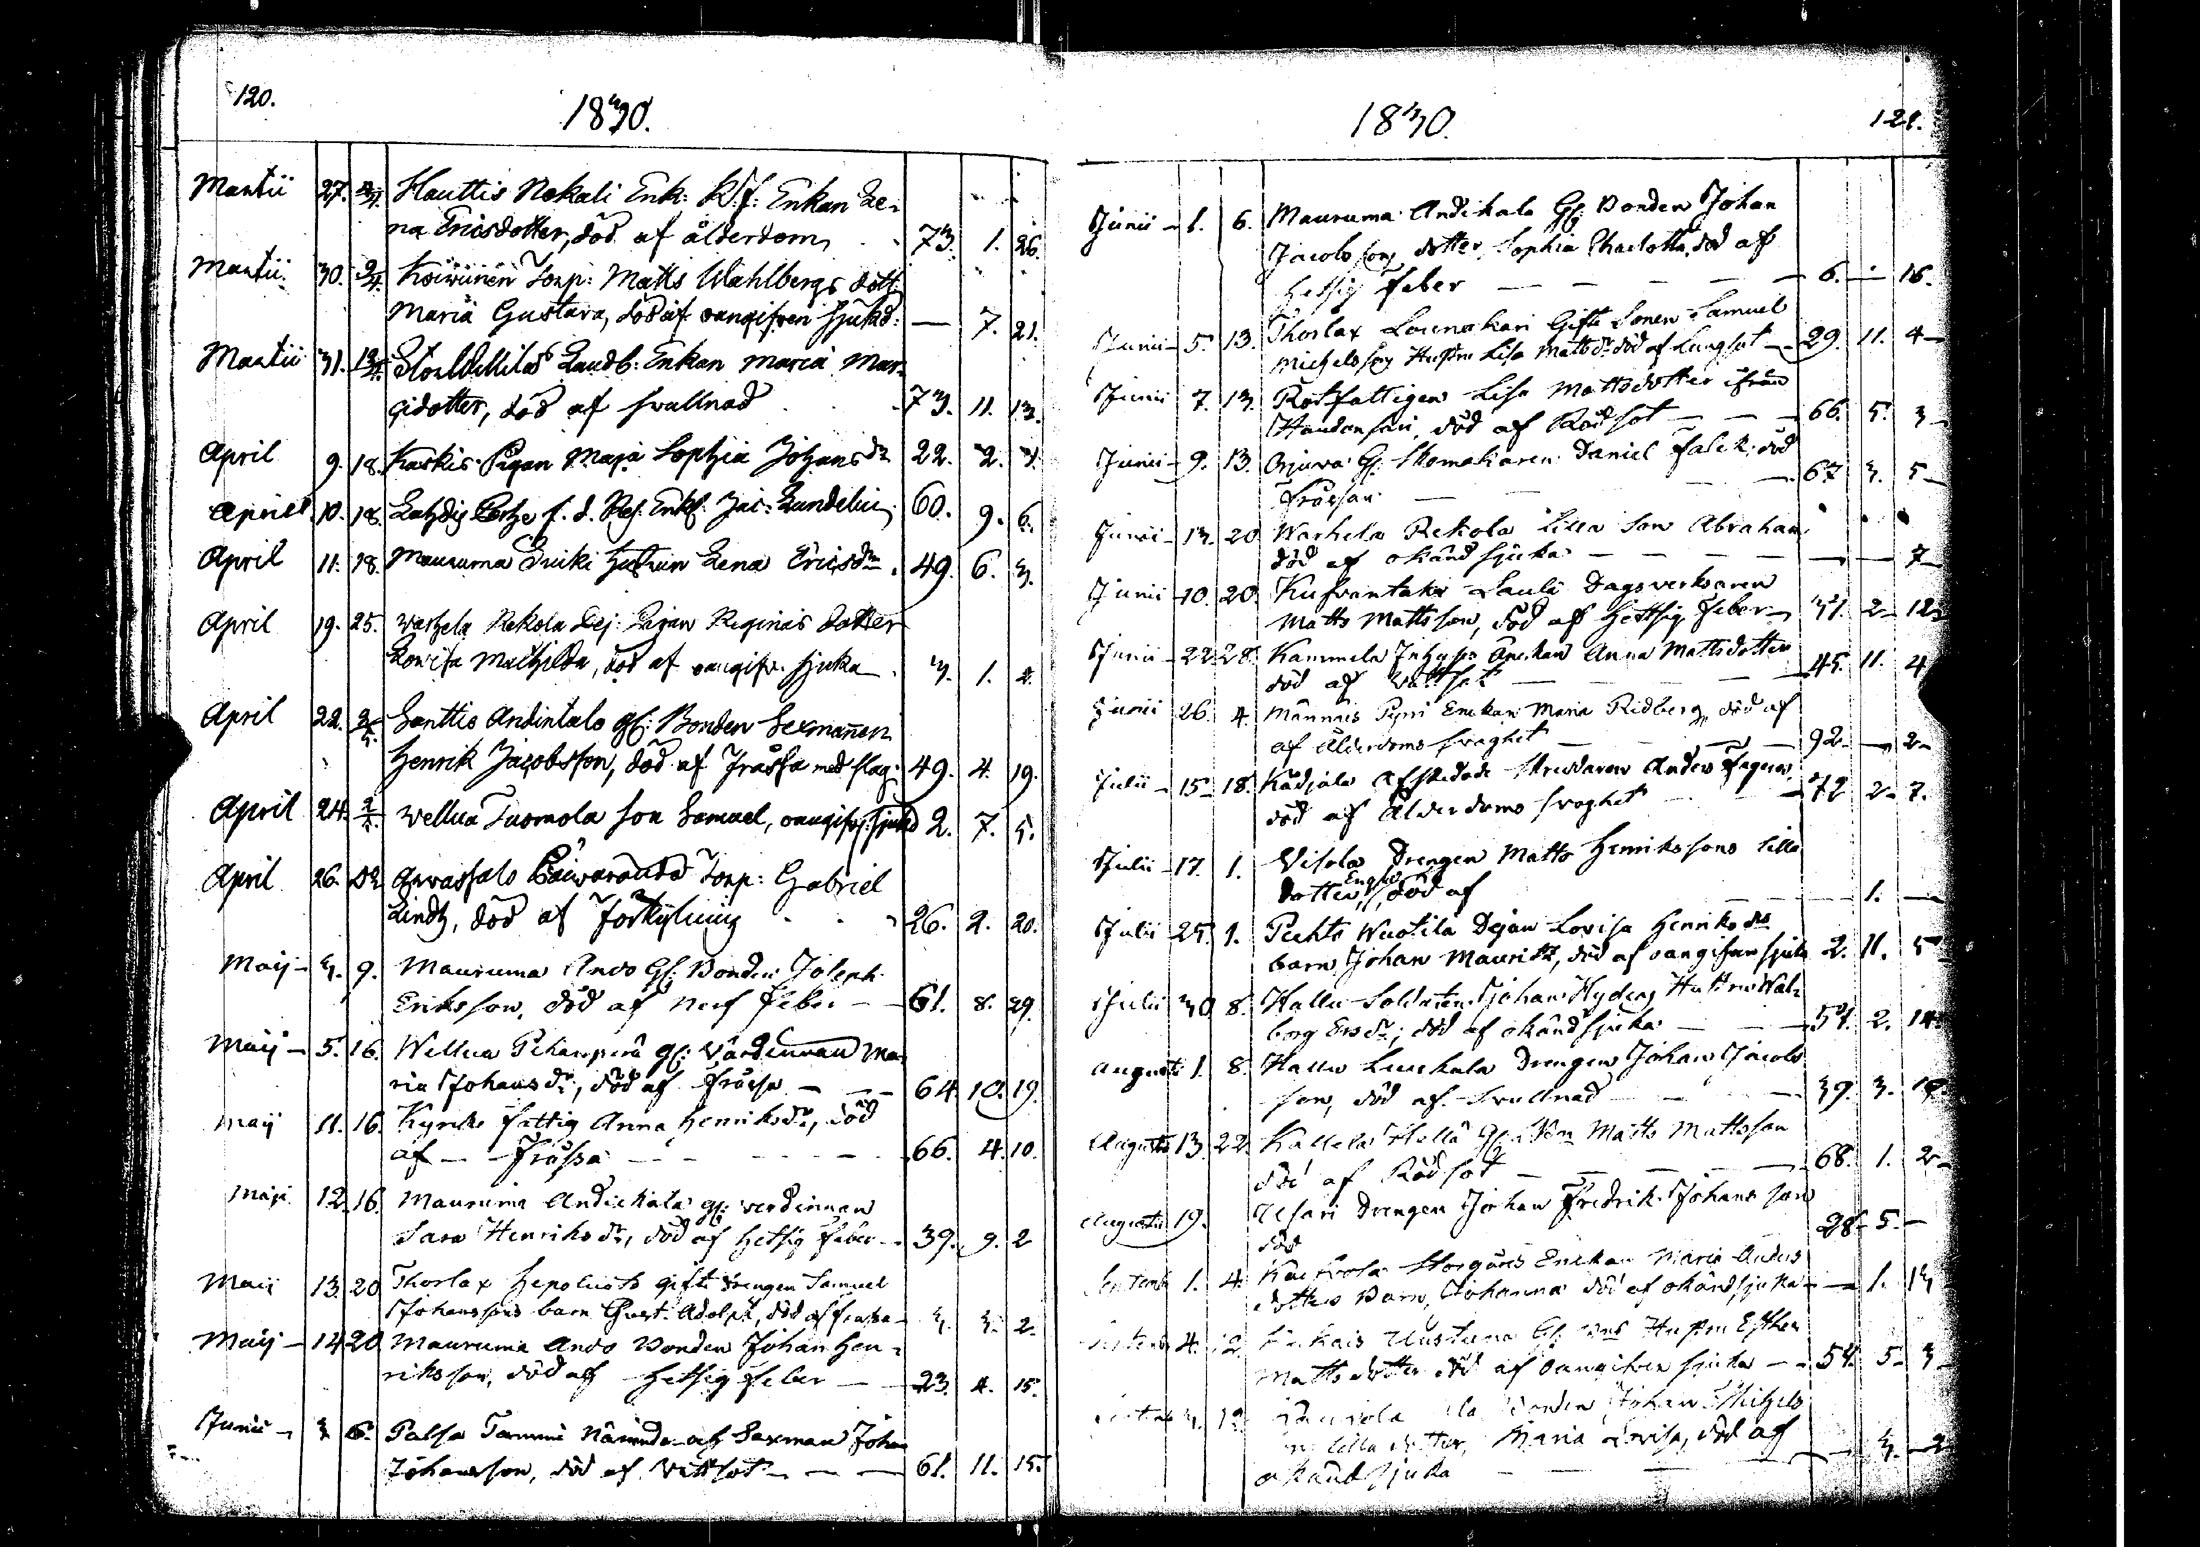 120.
1830.
Martii 27. 4/4. Hauttis Nokali Enk: K: f: Enkan Le-
na Ericsdotter, död af ålderdom 73. 1. 26.
Martii 30. 9/4. Koiwunen Torp: Matts Wahlbergs dott:
Maria Gustava, död af oangifven sjukd: — 7. 21.
Martii 31. Landb: Enkan Maria Mar-
gidotter, död af svullnad 73. 11. 13.
April 9. 18. Kaskis Pigan Maja Sophia Johansdr 22. 2. 3.
April 10. 18. f. d. Enkl: Jac: Lundelius 60. 9. 6.
April 11. 18. Mauruma Eriki Hustrun Lena Ericsdr 49. 6. 3.
April 19. 25. Warhela Rekola Dej: Pigan Reginas dotter
Lovisa Mathilda, död af oangifv. sjuka 3. 1. 2.
April 22. 2/5. Santtis Andintalo gf: Bonden Sexmannen
Henrik Jacobsson, död af Fråssa med slag 49. 4. 19.
April 24. 2/5. Wellua Tuomola son Samuel, oangifv: sjukd 2. 7. 5.
April 26. Do Arvassalo Torp: Gabriel
Lindh, död af förkylning 26. 2. 20.
Maij 3. 9. Mauruma Anvo Gf: Bonden Joseph
Eriksson, död af Nerf feber — 61. 8. 29.
Maij 5. 16. Wellua Pehanperä gf: Värdinnan Ma-
ria Johansdr, död af fråssa — 64. 10. 19.
Maij 11. 16. Kyrcko fattig Anna Henriksdr, död
af — Fråssa — 66. 4. 10.
Maji 12. 16. Mauruma Andickala gf: verdinnan
Sara Henriksdr, död af hetsig feber 39. 9. 2
Maij 13. 20 Thorlax Sepoluoto gift drengen Samuel
Johanssons barn Gust. Adolph, död af frassa 3. 3. 2.
Maij — 14 20 Mauruma Anvo Bonden Johan Hen-
riksson, död af hetsig feber — 23. 4. 15.
Junii — 3 6. Palsa Tammi Nämndm och Sexman Johan
Johansson, död af Vattsot — 61. 11. 15.
1830.
121.
Junii — 1. 6. Mauruma Andikala Gf: Bonden Johan
Jacobsons dotter Sophia Charlotta, död af
hetsig feber — 6. — 16.
Junii — 5. 13. Thorlax Lounakari Gifte Sonen Samuel
Michelsson Hustru Lisa Mattsdr död af Lungsot — 29. 11. 4
Junii 7. 13. Rotfattigen Lisa Mattsdotter ifrån
Haudansari, död af Rödsot — 66. 5. 3
Junii — 9. 13. Gf: Skomakaren Daniel Falck död
fråssan — 67 3. 5
Junii — 13. 20 Warhela Rekola lilla son Abraham
död af okänd sjuka — 7
Junii — 10. 20. Laulä Dagsverkaren
Matts Mattsson, död af hetsig feber — 31. 2 12
Junii — 22 28. Kammela Enckan Anna Mattsdotter
död af Vattsot — 45. 11. 4
Junii 26. 4. Männäis Pyri Enckan Maria Ridberg, död af
af Ålderdoms svaghet — 92. — 2
Julii — 15 18. Kädjäla Afskedade Skreddaren Anders Fagerro
död af Ålderdoms svaghet 72 2 7.
Julii 17. 1. Visola Drengen Matts Henrikssons lilla
dotter, död af — 1. —
Julii 25. 1. Puhto Wuotila Dejan Lovisa Henriksdr
barn Johan Mauritz, död af oangifven sjuka 2. 11. 5
Julii 30 8. Hallu Soldaten Johan Nyberg Hustru Wal-
borg Ersdr, död af okänd sjuka — 54. 2. 14.
Augusti 1. 8. Hallu Luukala Drengen Johan Jacobs
son, död af Svullnad 39. 3. 19.
Augusti 13. 22. Kallela Hellä Gf: Bon Matts Mattsson
död af Rödsot — 68. 1. 2
Augusti 19. Drengen Johan Fredrik Johansson
död 28. 5. —
Septemb 1. 4. Storgårds Enckan Maria Anders
dotters Barn, Johanna död af okänd sjuka — 1. 13
4. 12 Uustuna Gf: Hustru Esther
Mattsdotter död af oangifven sjuka — 54. 5. 3
Bonden Johan Michels
lilla dotter, Maria Lovisa, död af
okänd sjuka — 3. 2